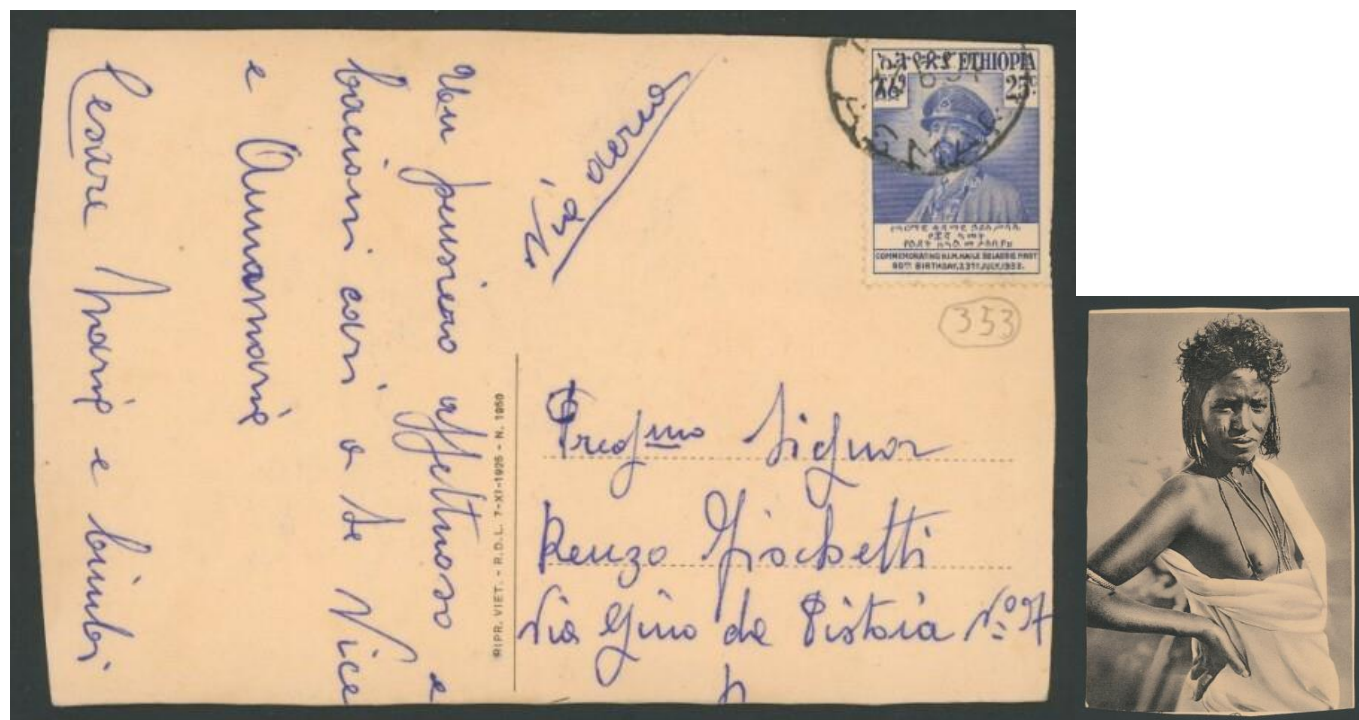 Un pensiero affettuoso e
bacioni cari a te Vice
e Annamaria
Cesare Maria e bimbi
Via aerea
ኢትዮጵያ ETHIOPIA
25
COMMEMORATING H.I.M. HAILE SELASSIE FIRST
60TH BIRTHDAY, 23RD JULY, 1952.
353
RIPR. VIET. - R.D.L. 7-XI-1925 - N. 1950
Preg.mo Signor
Renzo Giochetti
Via Gino da Pistoia N.º 97